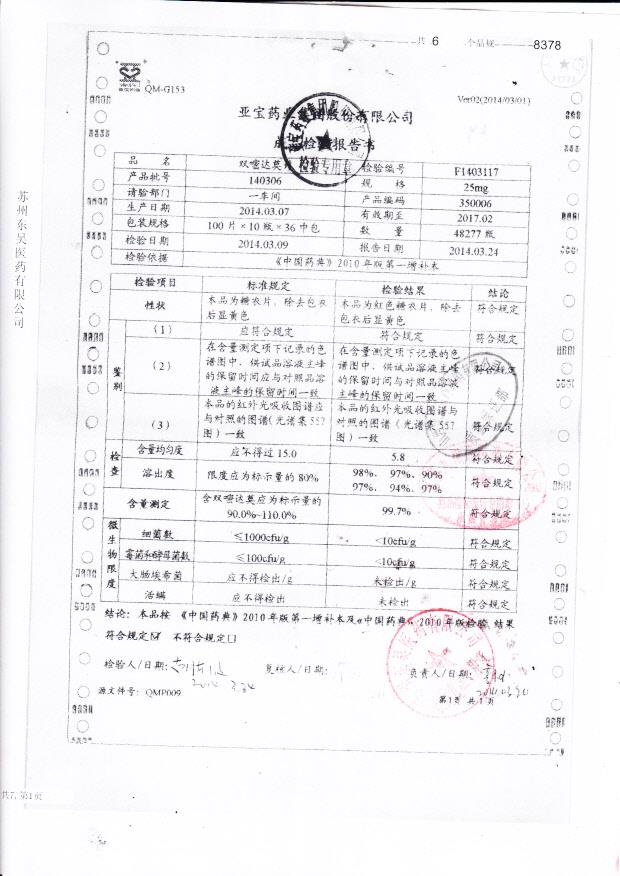 共 6 个品规 8378
QM-G153
Ver02(2014/03/01)
亚宝药业集团股份有限公司
成品检验报告书
检验专用章
品 名 双嘧达莫片 检验编号 F1403117
产品批号 140306 规 格 25mg
请验部门 一车间 产品编码 350006
生产日期 2014.03.07 有效期至 2017.02
包装规格 100片×10版×36中包 数 量 48277版
检验日期 2014.03.09 报告日期 2014.03.24
检验依据 《中国药典》2010年版第一增补本
检验项目 标准规定 检验结果 结论
性状 本品为糖衣片，除去包衣后显黄色 本品为红色糖衣片，除去包衣后显黄色 符合规定
鉴别
(1) 应符合规定 符合规定 符合规定
(2) 在含量测定项下记录的色谱图中，供试品溶液主峰的保留时间应与对照品溶液主峰的保留时间一致 在含量测定项下记录的色谱图中，供试品溶液主峰的保留时间与对照品溶液主峰的保留时间一致 符合规定
(3) 本品的红外光吸收图谱应与对照的图谱(光谱集557图)一致 本品的红外光吸收图谱与对照的图谱(光谱集557图)一致 符合规定
检查
含量均匀度 应不得过15.0 5.8 符合规定
溶出度 限度应为标示量的80% 98%、97%、90% 97%、94%、97% 符合规定
含量测定 含双嘧达莫应为标示量的90.0%~110.0% 99.7% 符合规定
微生物限度
细菌数 ≤1000cfu/g <10cfu/g 符合规定
霉菌和酵母菌数 ≤100cfu/g <10cfu/g 符合规定
大肠埃希菌 应不得检出/g 未检出/g 符合规定
活螨 应不得检出 未检出 符合规定
结论：本品按《中国药典》2010年版第一增补本及《中国药典》2010年版检验 结果
符合规定☑ 不符合规定□
检验人/日期： 复核人/日期： 负责人/日期：
源文件号：QMP009
第1页 共1页
苏州东吴医药有限公司
共7,第1页